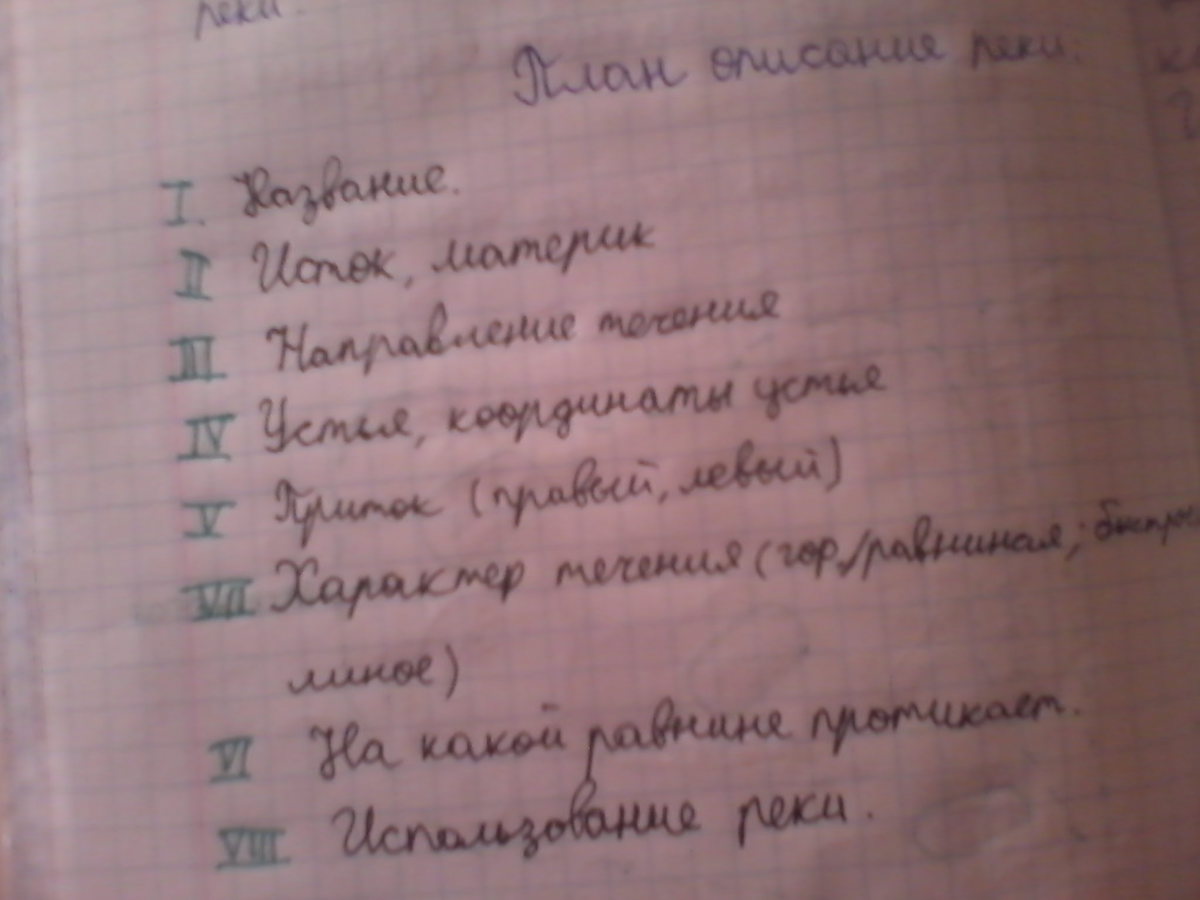 реки.
План описания реки.
I. Название.
II Исток, материк
III Направление течения
IV Устья, координаты устья
V Приток (правый, левый)
VII Характер течения (гор/равниная;
линое)
VI На какой равнине протикает.
VIII Использование реки.